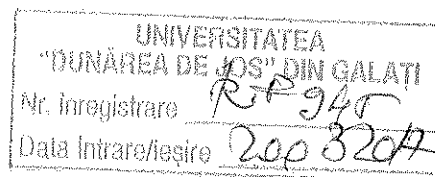 UNIVERSITATEA
"DUNĂREA DE JOS" DIN GALAŢI
Nr. înregistrare RP 945
Data Intrare/ieşire